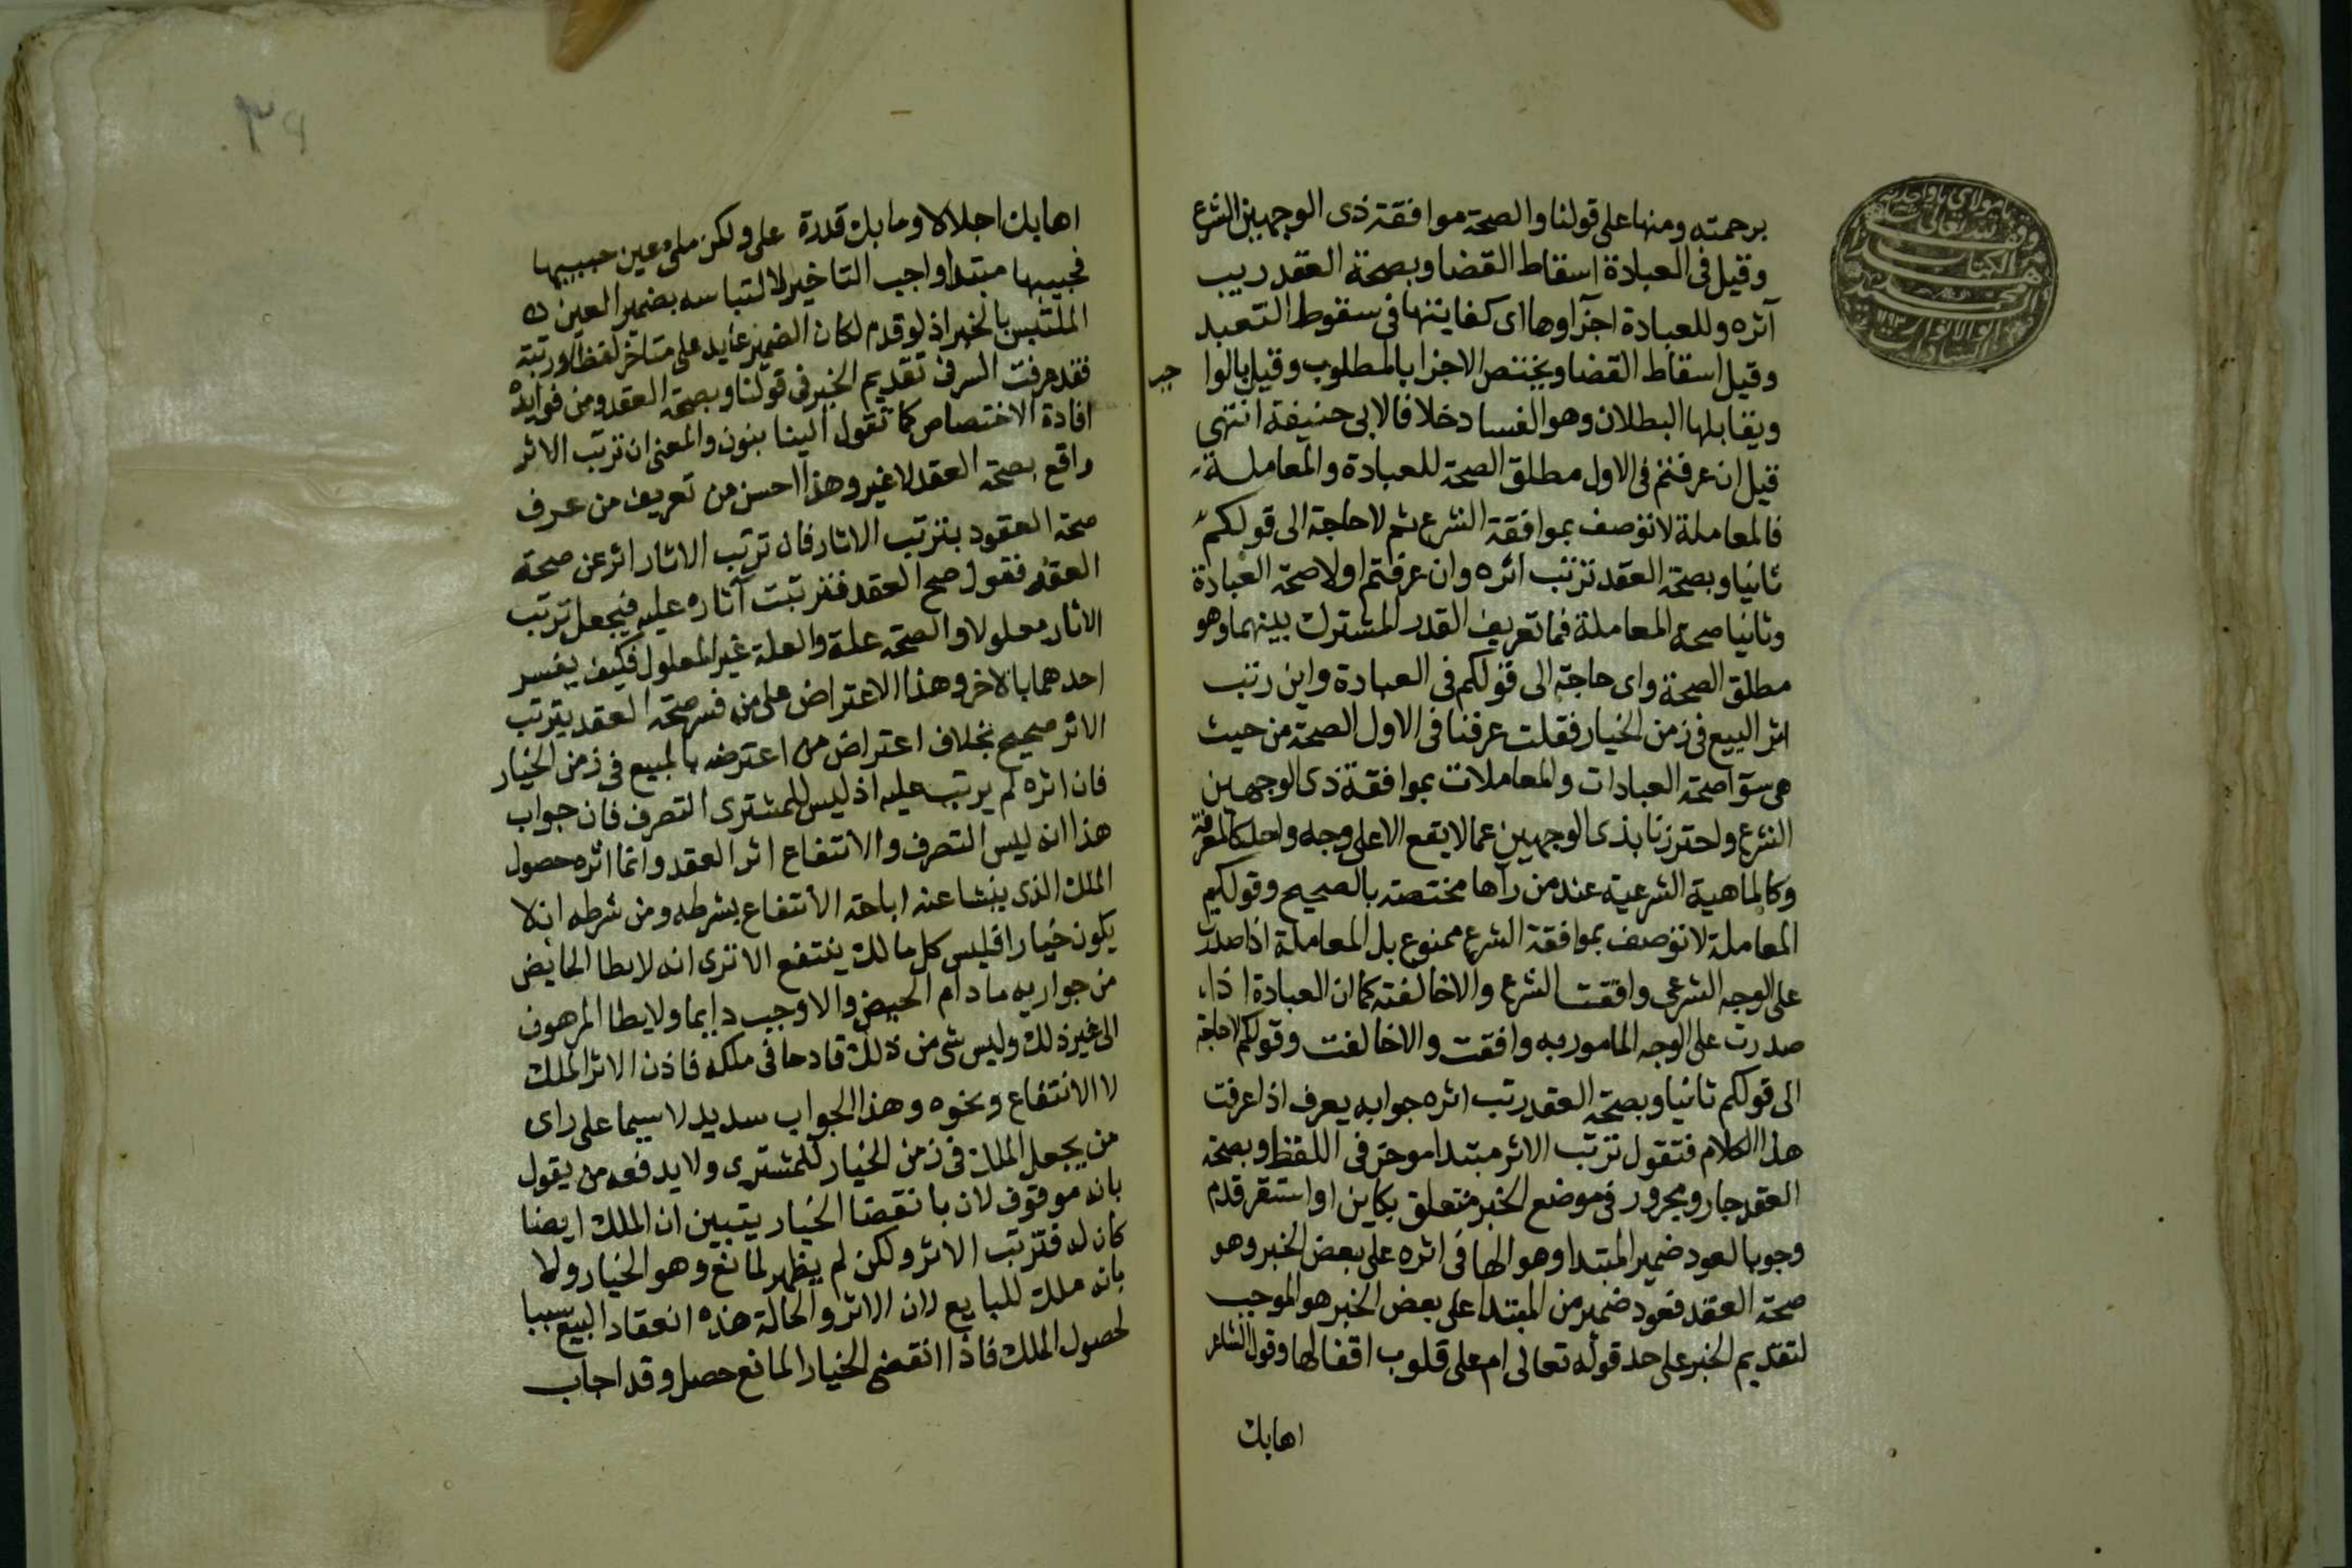 برحمته ومنها على قولنا والصحة موافقة ذى الوجهين الشرع
وقيل فى العبادة اسقاط القضا وبصحة العقد ريب
آثره وللعبادة اجزآوها اى كفايتها فى سقوط التعبد
وقيل اسقاط القضا ويختص الاجزا بالمطلوب وقيل بالوا جب
ويقابلها البطلان وهو الفساد خلافا لابى حنيفة انتهى
قيل ان عرفتم فى الاول مطلق الصحة للعبادة والمعاملة
فالمعاملة لا توصف بموافقة الشرع ثم لا حاجة الى قولكم
ثانيا وبصحة العقد ترتب اثره وان عرفتم اولا صحة العبادة
وثانيا صحة المعاملة فما تعريف القدر المشترك بينهما وهو
مطلق الصحة واى حاجة الى قولكم فى العبادة واين رتب
اثر البيع فى زمن الخيار فقلت عرفنا فى الاول الصحة من حيث
هى سوآ صحة العبادات والمعاملات بموافقة ذى الوجهين
الشرع واحترزنا بذى الوجهين عما لا يقع الا على وجه واحد كالمعرفة
وكالماهية الشرعية عند من رآها مختصة بالصحيح وقولكم
المعاملة لا توصف بموافقة الشرع ممنوع بل المعاملة اذا صدرت
على الوجه الشرعى وافقت الشرع والا خالفته كما ان العبادة اذا
صدرت على الوجه المامور به وافقت والا خالفت وقولكم لا حاجة
الى قولكم ثانيا وبصحة العقد رتب اثره جوابه يعرف اذا عرفت
هذا الكلام فتقول ترتب الاثر مبتدا موخر فى اللفظ وبصحة
العقد جار ومجرور فى موضع الخبر متعلق بكاين او استقر قدم
وجوبا لعود ضمير المبتدا وهو الها فى اثره على بعض الخبر وهو
صحة العقد فعود ضمير من المبتدا على بعض الخبر هو الموجب
لتقديم الخبر على حد قوله تعالى ام على قلوب اقفالها وقول الشاعر
اهابك
اهابك اجلالا وما بك قدرة على ولكن ملئ عين حبيبها
فحبيبها مبتدا واجب التاخير لالتباسه بضمير العين
الملتبس بالخبر اذ لو قدم لكان الضمير عايد على متاخر لفظا ورتبة
فقد عرفت السر فى تقديم الخبر فى قولنا وبصحة العقد ومن فوايده
افادة الاختصاص كما تقول الينا بنون والمعنى ان ترتب الاثر
واقع بصحة العقد لا غير وهذا احسن من تعريف من عرف
صحة العقود بترتب الاثار فان ترتب الاثار اثر عن صحة
العقد فقول صح العقد فترتبت آثاره عليه فيجعل ترتب
الاثار معلولا والصحة علة والعلة غير المعلول فكيف يفسر
احدهما بالاخر وهذا الاعتراض على من فسر صحة العقد بترتب
الاثر صحيح بخلاف اعتراض من اعترضه بالمبيع فى زمن الخيار
فان اثره لم يرتب عليه اذ ليس للمشترى التصرف فان جواب
هذا انه ليس التصرف والانتفاع اثر العقد وانما اثره حصول
الملك الذى ينشا عنه اباحة الانتفاع بشرطه ومن شرطه ان لا
يكون خيارا فليس كل مالك ينتفع الا ترى انه لا يطا الحايض
من جواريه ما دام الحيض والا وجب دايما ولا يطا المرهون
الى غير ذلك وليس شى من ذلك قادحا فى ملكه فاذن الاثر الملك
لا الانتفاع ونحوه وهذا الجواب سديد لا سيما على راى
من يجعل الملك فى زمن الخيار للمشترى ولا يدفعه من يقول
بانه موقوف لان بانقضا الخيار يتبين ان الملك ايضا
كان له فترتب الاثر ولكن لم يظهر لمانع وهو الخيار ولا
بانه ملك للبايع لان الاثر والحالة هذه انعقاد البيع سببا
لحصول الملك فاذا انقضى الخيار المانع حصل وقد اجاب